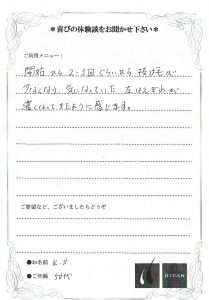 ＊喜びの体験談をお聞かせ下さい＊
ご利用メニュー：
開始から2-3回ぐらいから 抜け毛が
少なくなり、気になっていた 左はえぎわが
濃くなってきたように感じます。
ご要望など、ございましたらどうぞ
●お名前 K.S
●ご年齢 50代
HIDAN